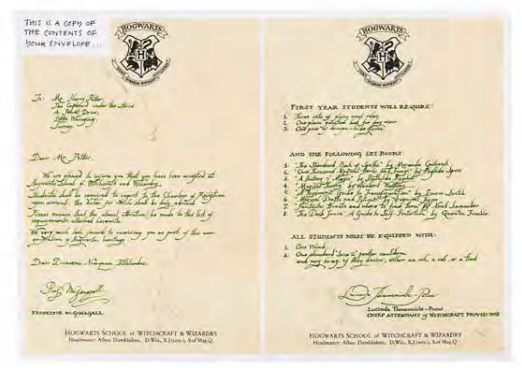 THIS IS A COPY OF
THE CONTENTS OF
YOUR ENVELOPE...
HOGWARTS
To: Mr. Harry Potter,
The Cupboard under the Stairs
4, Privet Drive,
Little Whinging
Surrey
Dear Mr. Potter,
We are pleased to inform you that you have been accepted at
Hogwarts School of Witchcraft and Wizardry.
Students shall be required to report to the Chamber of Reception
upon arrival, the dates for which shall be duly advised.
Please ensure that the utmost attention be made to the list of
requirements attached herewith.
We very much look forward to receiving you as part of the new
generation of Hogwarts heritage.
Prof. McGonagall
PROFESSOR McGONAGALL
HOGWARTS SCHOOL of WITCHCRAFT & WIZARDRY
Headmaster: Albus Dumbledore, D.Wiz., X.J.(sorc.), S.of Mag.Q.
HOGWARTS
FIRST YEAR STUDENTS WILL REQUIRE:
1. Three sets of plain work robes
2. One plain pointed hat for day wear
3. One pair of dragon-hide gloves
AND THE FOLLOWING SET BOOKS:
1. "The Standard Book of Spells" by Miranda Goshawk
2. "One Thousand Magical Herbs and Fungi" by Phyllida Spore
3. "A History of Magic" by Bathilda Bagshot
4. "Magical Theory" by Adalbert Waffling
5. "A Beginner's Guide to Transfiguration" by Emeric Switch
6. "Magical Drafts and Potions" by Arsenius Jigger
7. "Fantastic Beasts and Where to Find Them" by Newt Scamander
8. "The Dark Forces: A Guide to Self-Protection" by Quentin Trimble
ALL STUDENTS MUST BE EQUIPPED WITH:
1. One Wand
2. One standard size 2 pewter cauldron
and may bring, if they desire, either an owl, a cat, or a toad
Lucinda Thomsonicle-Pocus
CHIEF ATTENDANT of WITCHCRAFT PROVISIONS
HOGWARTS SCHOOL of WITCHCRAFT & WIZARDRY
Headmaster: Albus Dumbledore, D.Wiz., X.J.(sorc.), S.of Mag.Q.